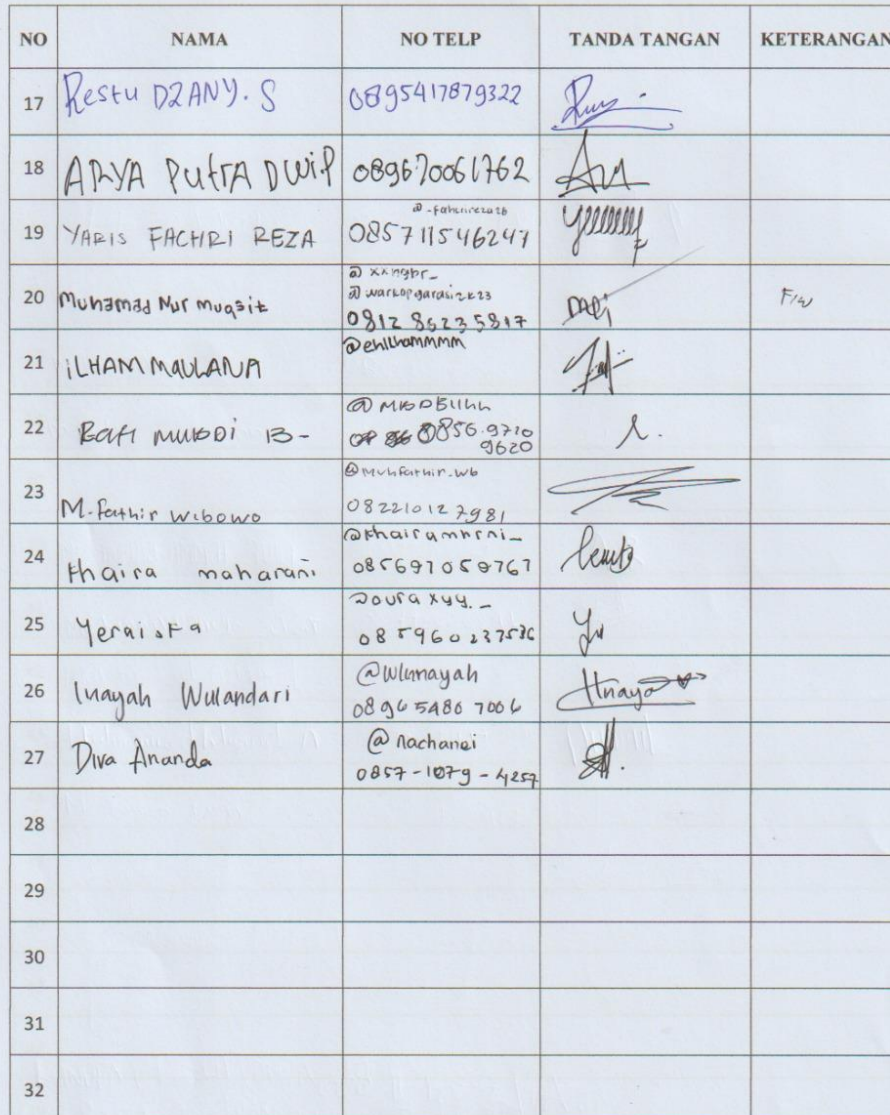 NO NAMA NO TELP TANDA TANGAN KETERANGAN
17 Restu DZANY. S 0895417879322
18 ARYA PUTRA DWIP 089670061762
19 YARIS FACHRI REZA 085711546247
20 Muhamad Nur Muqsit
@warkopgarasi2k23
081285235817
21 ILHAM MAULANA @enilhammmm
22
0856.9710
9620
23 M. Fathir Wibowo @Muhfathir_wb
082210127981
24 Khaira maharani @khairamhrni_
085697059767
25 Yeraiska
085960237536
26 Inayah Wulandari @wlnnayah
0896 5480 7006
27 Diva Ananda @nachanei
0857-1079-4257
28
29
30
31
32